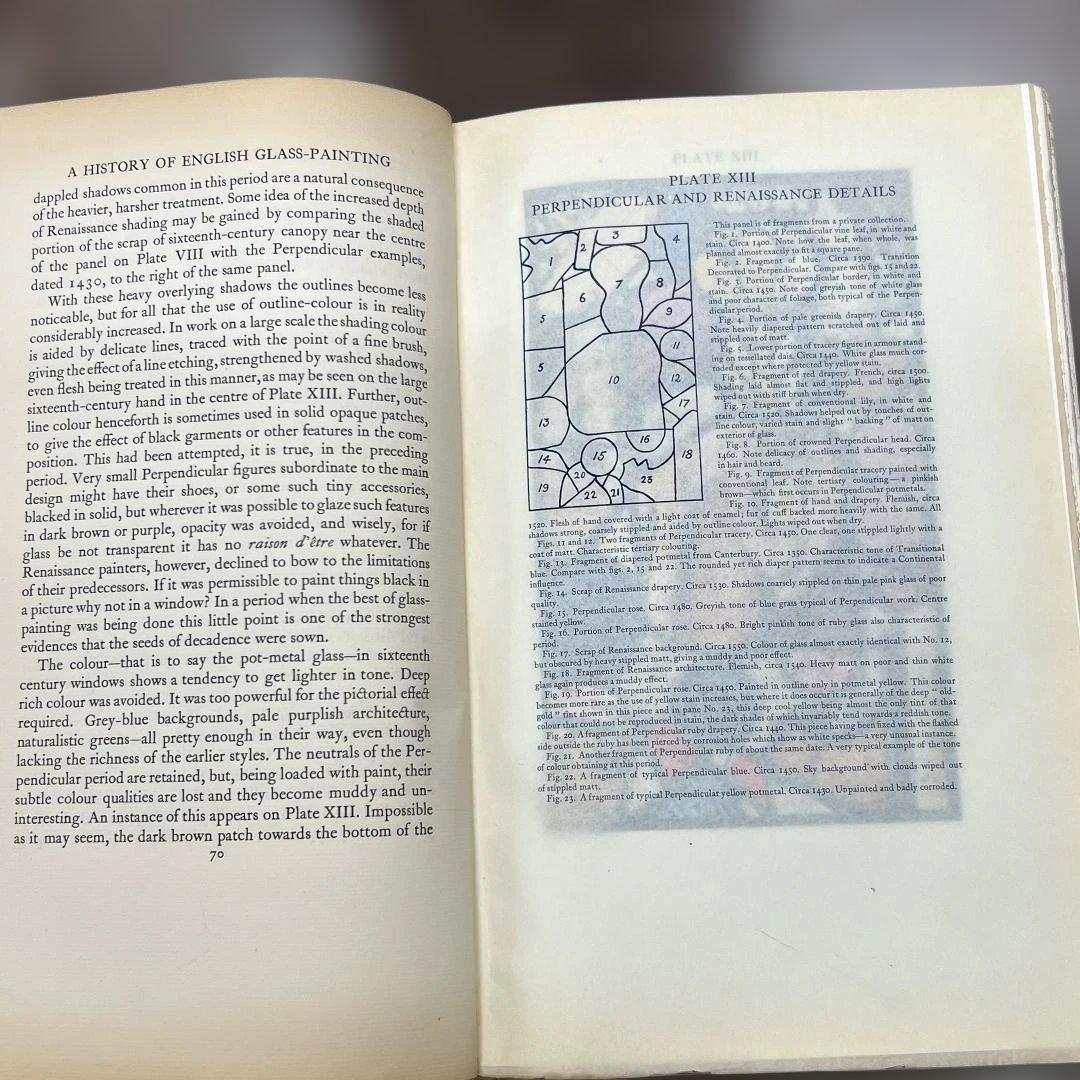 A HISTORY OF ENGLISH GLASS-PAINTING
dappled shadows common in this period are a natural consequence
of the heavier, harsher treatment. Some idea of the increased depth
of Renaissance shading may be gained by comparing the shaded
portion of the scrap of sixteenth-century canopy near the centre
of the panel on Plate VIII with the Perpendicular examples,
dated 1430, to the right of the same panel.
With these heavy overlying shadows the outlines become less
noticeable, but for all that the use of outline-colour is in reality
considerably increased. In work on a large scale the shading colour
is aided by delicate lines, traced with the point of a fine brush,
giving the effect of a line etching, strengthened by washed shadows,
even flesh being treated in this manner, as may be seen on the large
sixteenth-century hand in the centre of Plate XIII. Further, out-
line colour henceforth is sometimes used in solid opaque patches,
to give the effect of black garments or other features in the com-
position. This had been attempted, it is true, in the preceding
period. Very small Perpendicular figures subordinate to the main
design might have their shoes, or some such tiny accessories,
blacked in solid, but wherever it was possible to glaze such features
in dark brown or purple, opacity was avoided, and wisely, for if
glass be not transparent it has no raison d'être whatever. The
Renaissance painters, however, declined to bow to the limitations
of their predecessors. If it was permissible to paint things black in
a picture why not in a window? In a period when the best of glass-
painting was being done this little point is one of the strongest
evidences that the seeds of decadence were sown.
The colour—that is to say the pot-metal glass—in sixteenth
century windows shows a tendency to get lighter in tone. Deep
rich colour was avoided. It was too powerful for the pictorial effect
required. Grey-blue backgrounds, pale purplish architecture,
naturalistic greens—all pretty enough in their way, even though
lacking the richness of the earlier styles. The neutrals of the Per-
pendicular period are retained, but, being loaded with paint, their
subtle colour qualities are lost and they become muddy and un-
interesting. An instance of this appears on Plate XIII. Impossible
as it may seem, the dark brown patch towards the bottom of the
70
PLATE XIII
PLATE XIII
PERPENDICULAR AND RENAISSANCE DETAILS
1
2
3
4
5
6
7
8
9
5
10
11
12
13
14
15
16
17
18
19
20
21
22
23
This panel is of fragments from a private collection.
Fig. 1. Portion of Perpendicular vine leaf, in white and
stain. Circa 1400. Note how the leaf, when whole, was
planned almost exactly to fit a square pane.
Fig. 2. Fragment of blue. Circa 1390. Transition
Decorated to Perpendicular. Compare with figs. 15 and 22.
Fig. 3. Portion of Perpendicular border, in white and
stain. Circa 1450. Note cool greyish tone of white glass
and poor character of foliage, both typical of the Perpen-
dicular period.
Fig. 4. Portion of pale greenish drapery. Circa 1450.
Note heavily diapered pattern scratched out of laid and
stippled coat of matt.
Fig. 5. Lower portion of tracery figure in armour stand-
ing on tessellated dais. Circa 1440. White glass much cor-
roded except where protected by yellow stain.
Fig. 6. Fragment of red drapery. French, circa 1500.
Shading laid almost flat and stippled, and high lights
wiped out with stiff brush when dry.
Fig. 7. Fragment of conventional lily, in white and
stain. Circa 1520. Shadows helped out by touches of out-
line colour, varied stain and slight "backing" of matt on
exterior of glass.
Fig. 8. Portion of crowned Perpendicular head. Circa
1460. Note delicacy of outlines and shading, especially
in hair and beard.
Fig. 9. Fragment of Perpendicular tracery painted with
conventional leaf. Note tertiary colouring—a pinkish
brown—which first occurs in Perpendicular potmetals.
Fig. 10. Fragment of hand and drapery. Flemish, circa
1520. Flesh of hand covered with a light coat of enamel; fur of cuff backed more heavily with the same. All
shadows strong, coarsely stippled and aided by outline colour. Lights wiped out when dry.
Figs. 11 and 12. Two fragments of Perpendicular tracery. Circa 1450. One clear, one stippled lightly with a
coat of matt. Characteristic tertiary colouring.
Fig. 13. Fragment of diapered potmetal from Canterbury. Circa 1350. Characteristic tone of Transitional
blue. Compare with figs. 2, 15 and 22. The rounded yet rich diaper pattern seems to indicate a Continental
influence.
Fig. 14. Scrap of Renaissance drapery. Circa 1530. Shadows coarsely stippled on thin pale pink glass of poor
quality.
Fig. 15. Perpendicular rose. Circa 1480. Greyish tone of blue grass typical of Perpendicular work. Centre
stained yellow.
Fig. 16. Portion of Perpendicular rose. Circa 1480. Bright pinkish tone of ruby glass also characteristic of
period.
Fig. 17. Scrap of Renaissance background. Circa 1550. Colour of glass almost exactly identical with No. 12,
but obscured by heavy stippled matt, giving a muddy and poor effect.
Fig. 18. Fragment of Renaissance architecture. Flemish, circa 1540. Heavy matt on poor and thin white
glass again produces a muddy effect.
Fig. 19. Portion of Perpendicular rose. Circa 1450. Painted in outline only in potmetal yellow. This colour
becomes more rare as the use of yellow stain increases, but where it does occur it is generally of the deep "old-
gold" tint shown in this piece and in pane No. 23, this deep cool yellow being almost the only tint of that
colour that could not be reproduced in stain, the dark shades of which invariably tend towards a reddish tone.
Fig. 20. A fragment of Perpendicular ruby drapery. Circa 1440. This piece having been fixed with the flashed
side outside the ruby has been pierced by corrosion holes which show as white specks—a very unusual instance.
Fig. 21. Another fragment of Perpendicular ruby of about the same date. A very typical example of the tone
of colour obtaining at this period.
Fig. 22. A fragment of typical Perpendicular blue. Circa 1450. Sky background with clouds wiped out
of stippled matt.
Fig. 23. A fragment of typical Perpendicular yellow potmetal. Circa 1430. Unpainted and badly corroded.